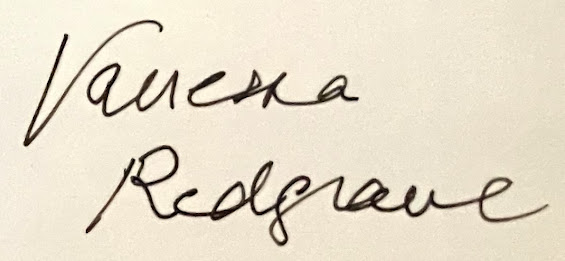 Vanessa
Redgrave